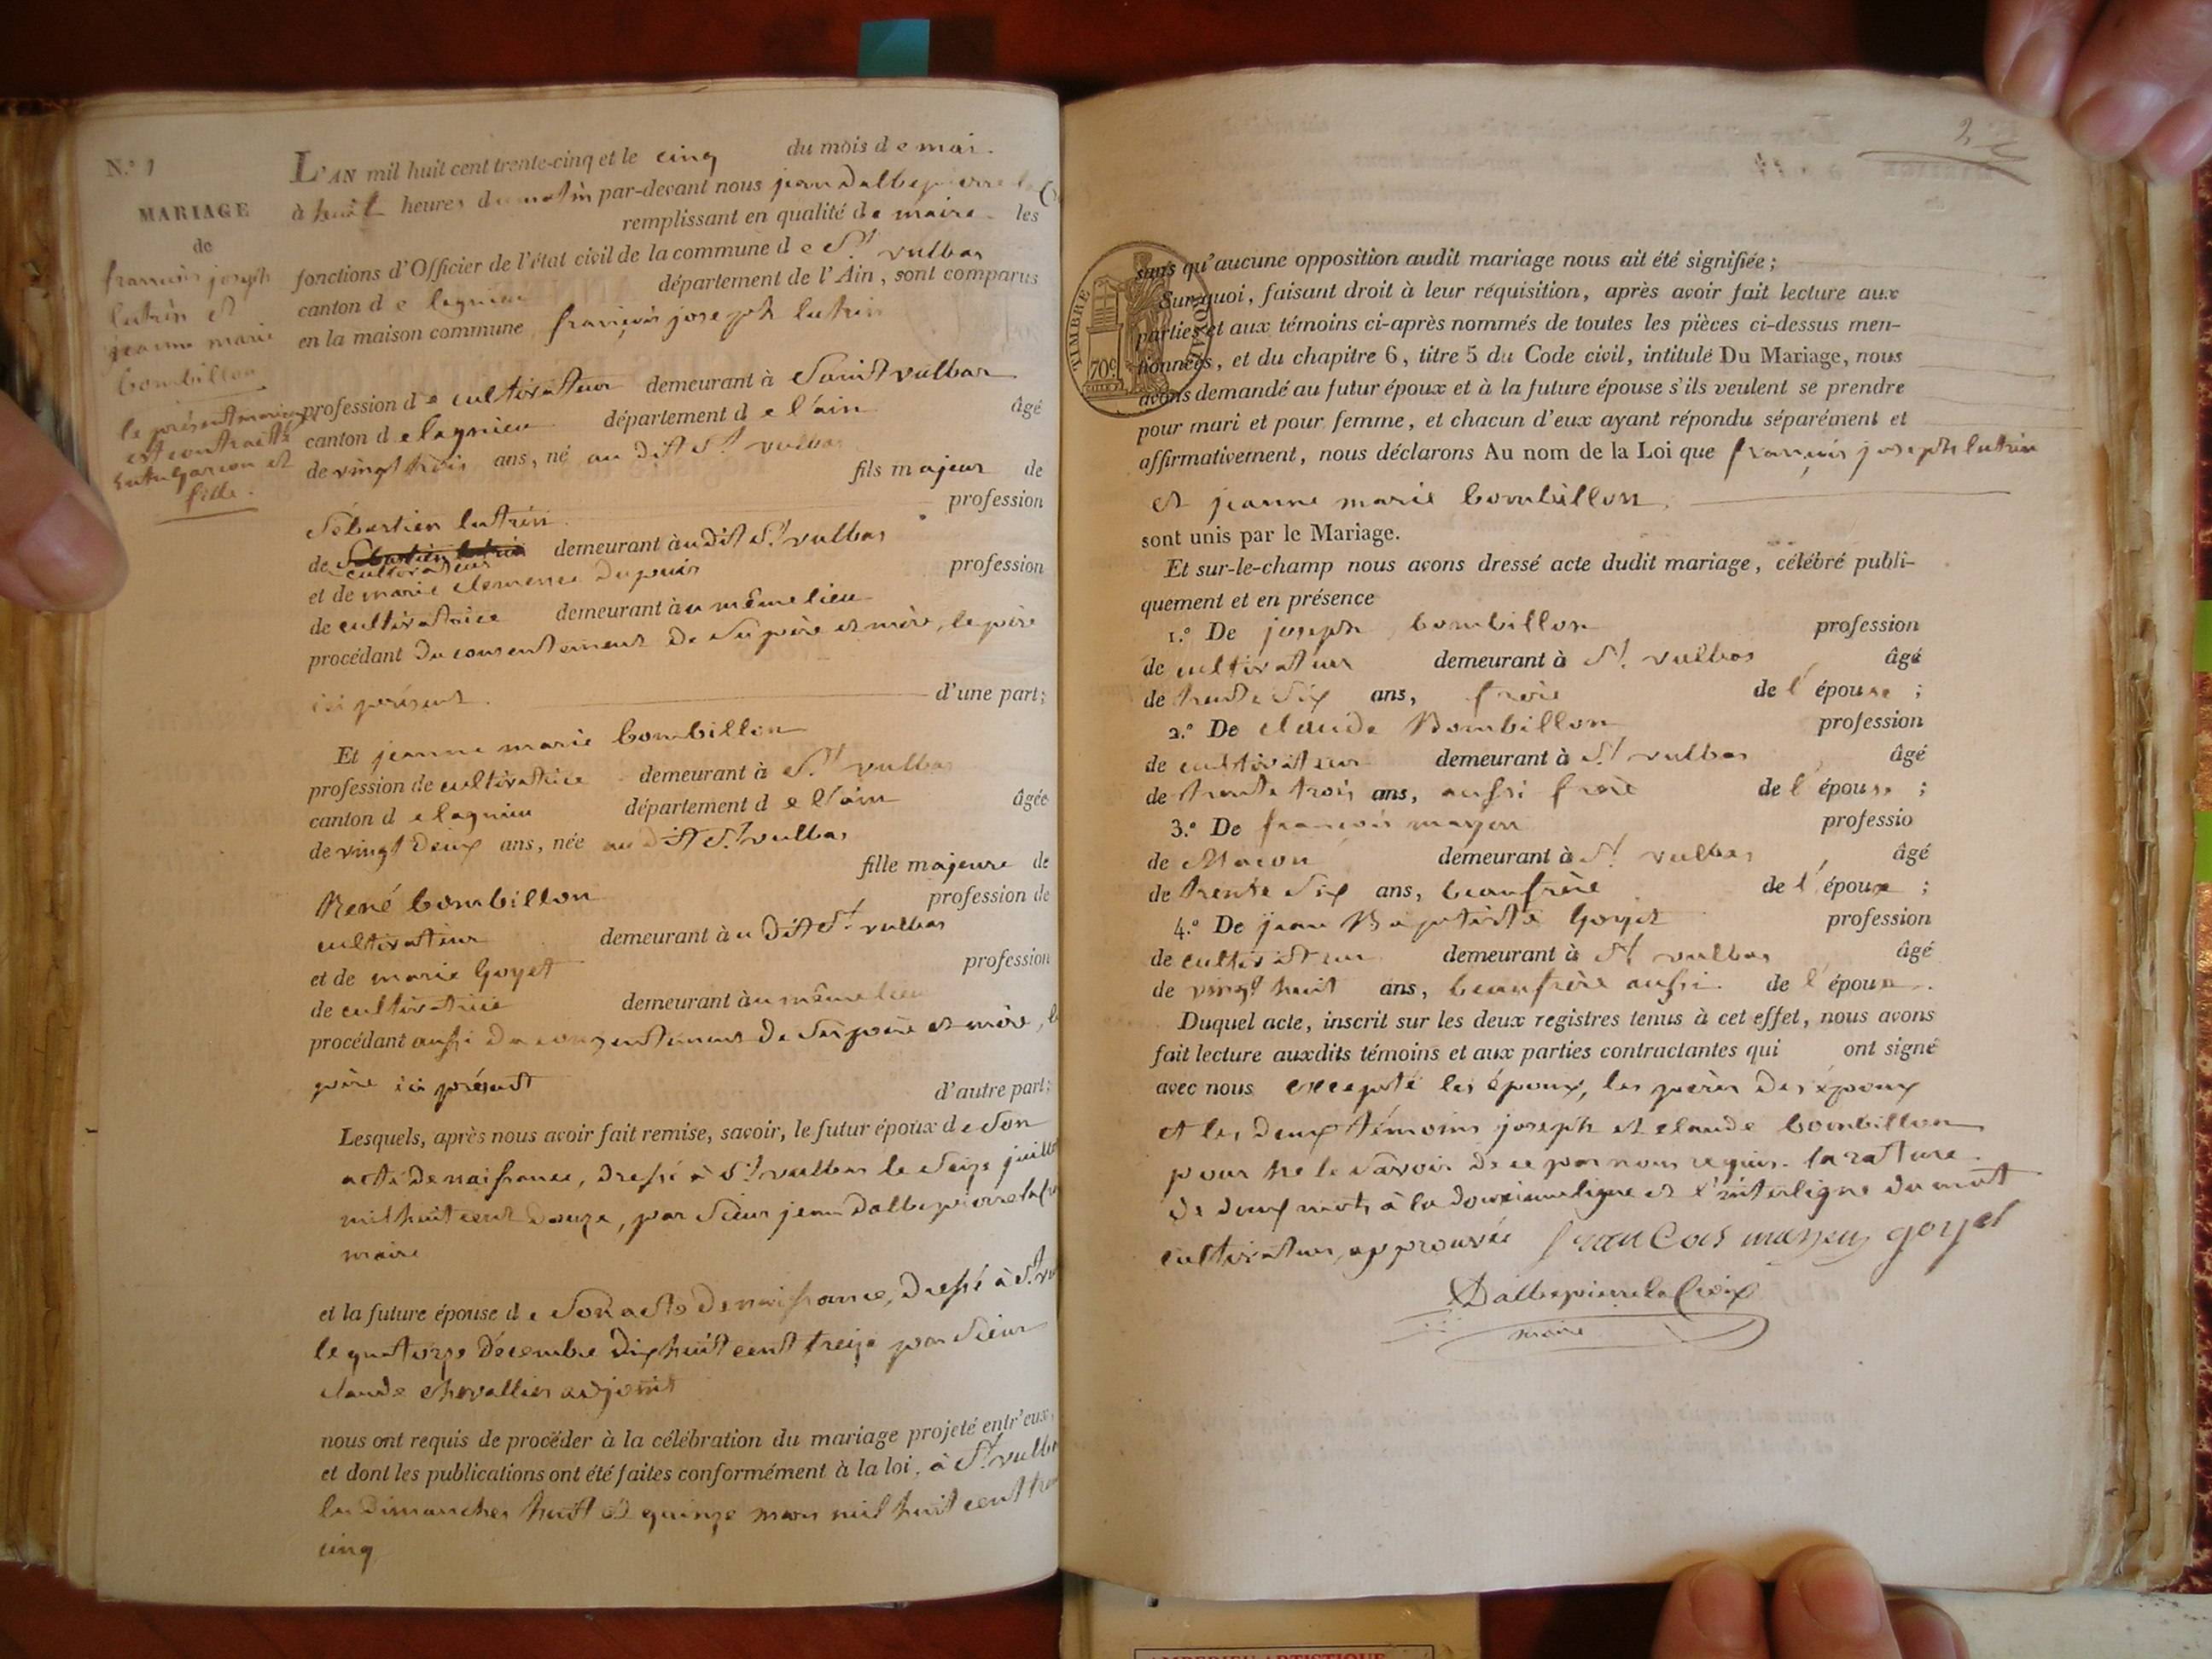 N.° 1
MARIAGE
de
françois joseph
lutrin et
jeanne marie
bombillon
le présent mariage
est contracté
entre garcon et
fille.
L'AN mil huit cent trente-cinq et le cinq du mois de mai.
à huit heures du matin par-devant nous jean Dalbepierre la
remplissant en qualité de maire les
fonctions d'Officier de l'état civil de la commune de St vulbas
canton de lagnieu département de l'Ain, sont comparus
en la maison commune françois joseph lutrin
profession de cultivateur demeurant à Saint vulbas
canton de lagnieu département de l'ain âgé
de vingt trois ans, né au dit St vulbas
fils majeur de
Sébastien lutrin profession
de Sébastien lutrin cultivateur demeurant à udit St vulbas
et de marie clemence Dupuis profession
de cultivatrice demeurant à u même lieu
procédant du consentement de Ses père et mère, le père
ici présent. d'une part;
Et jeanne marie bombillon
profession de cultivatrice demeurant à St vulbas
canton de lagnieu département de l'ain âgée
de vingt deux ans, née au dit St vulbas
fille majeure de
René bombillon profession de
cultivateur demeurant à u dit St vulbas
et de marie Goyet profession
de cultivatrice demeurant à u même lieu
procédant aussi du consentement de Ses père et mère, le
père ici présent d'autre part;
Lesquels, après nous avoir fait remise, savoir, le futur époux de Son
acte de naissance, dressé à St vulbas le Seize juillet
mil huit cent douze, par Sieur jean Dalbepierre la
maire
et la future épouse de Son acte de naissance, dressé à St
le quatorze décembre dix huit cent treize par Sieur
claude chevallier adjoint
nous ont requis de procéder à la célébration du mariage projeté entr'eux,
et dont les publications ont été faites conformément à la loi, à St vulbas
les dimanches huit et quinze mars mil huit cent
cinq
2
TIMBRE ROYAL
70c
sans qu'aucune opposition audit mariage nous ait été signifiée;
Sur quoi, faisant droit à leur réquisition, après avoir fait lecture aux
parties et aux témoins ci-après nommés de toutes les pièces ci-dessus men-
tionnées, et du chapitre 6, titre 5 du Code civil, intitulé Du Mariage, nous
avons demandé au futur époux et à la future épouse s'ils veulent se prendre
pour mari et pour femme, et chacun d'eux ayant répondu séparément et
affirmativement, nous déclarons Au nom de la Loi que françois joseph lutrin
et jeanne marie bombillon
sont unis par le Mariage.
Et sur-le-champ nous avons dressé acte dudit mariage, célébré publi-
quement et en présence
1.° De joseph bombillon profession
de cultivateur demeurant à St. vulbas âgé
de trente Six ans, frère de l'épouse;
2.° De claude Bombillon profession
de cultivateur demeurant à St vulbas âgé
de trente trois ans, aussi frère de l'épouse;
3.° De françois mayen professio
de Macon demeurant à St vulbas, âgé
de trente Six ans, beaufrère de l'époux;
4.° De jean Baptiste Goyet profession
de cultivateur demeurant à St vulbas âgé
de vingt huit ans, beaufrère aussi. de l'époux.
Duquel acte, inscrit sur les deux registres tenus à cet effet, nous avons
fait lecture auxdits témoins et aux parties contractantes qui ont signé
avec nous excepté les époux, les pères des époux
et les deux témoins joseph et claude bombillon
pour ne le Savoir de ce par nous requis. la rature
de deux mots à la douzieme ligne et l'interligne du mot
cultivateur, approuvée françois goyet
Dalbepierre la Croix
maire
AMBERIEU ARTISTIQUE